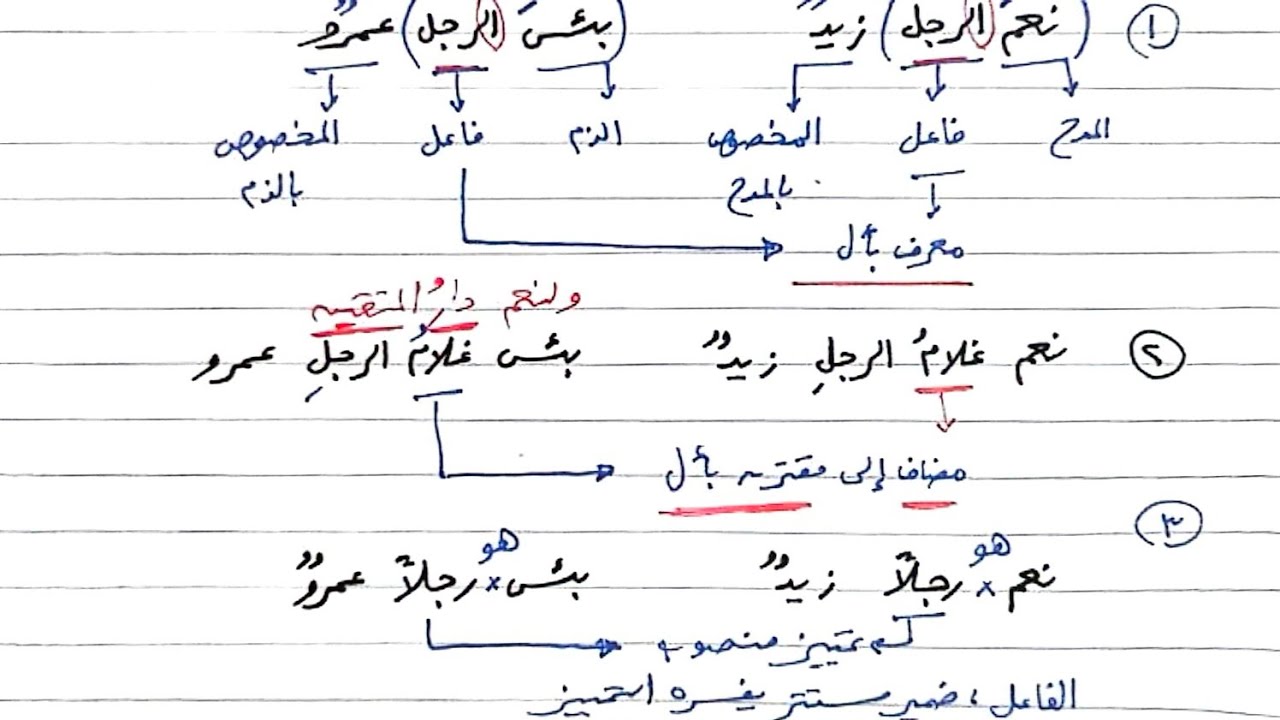 ١ (نعمَ الرجل) زيدٌ (بئسَ الرجل) عمرٌو
المدح فاعل المخصوص الذم فاعل المخصوص
بالمدح بالذم
معرف بأل
ولنعم دارُ المتقين
٢ نعم غلامُ الرجلِ زيدٌ بئس غلامُ الرجلِ عمرو
مضاف إلى مقترن بأل
٣
هو هو
نعم × رجلاً زيدٌ بئس × رجلاً عمرٌو
تمييز منصوب
الفاعل، ضمير مستتر يفسره التمييز